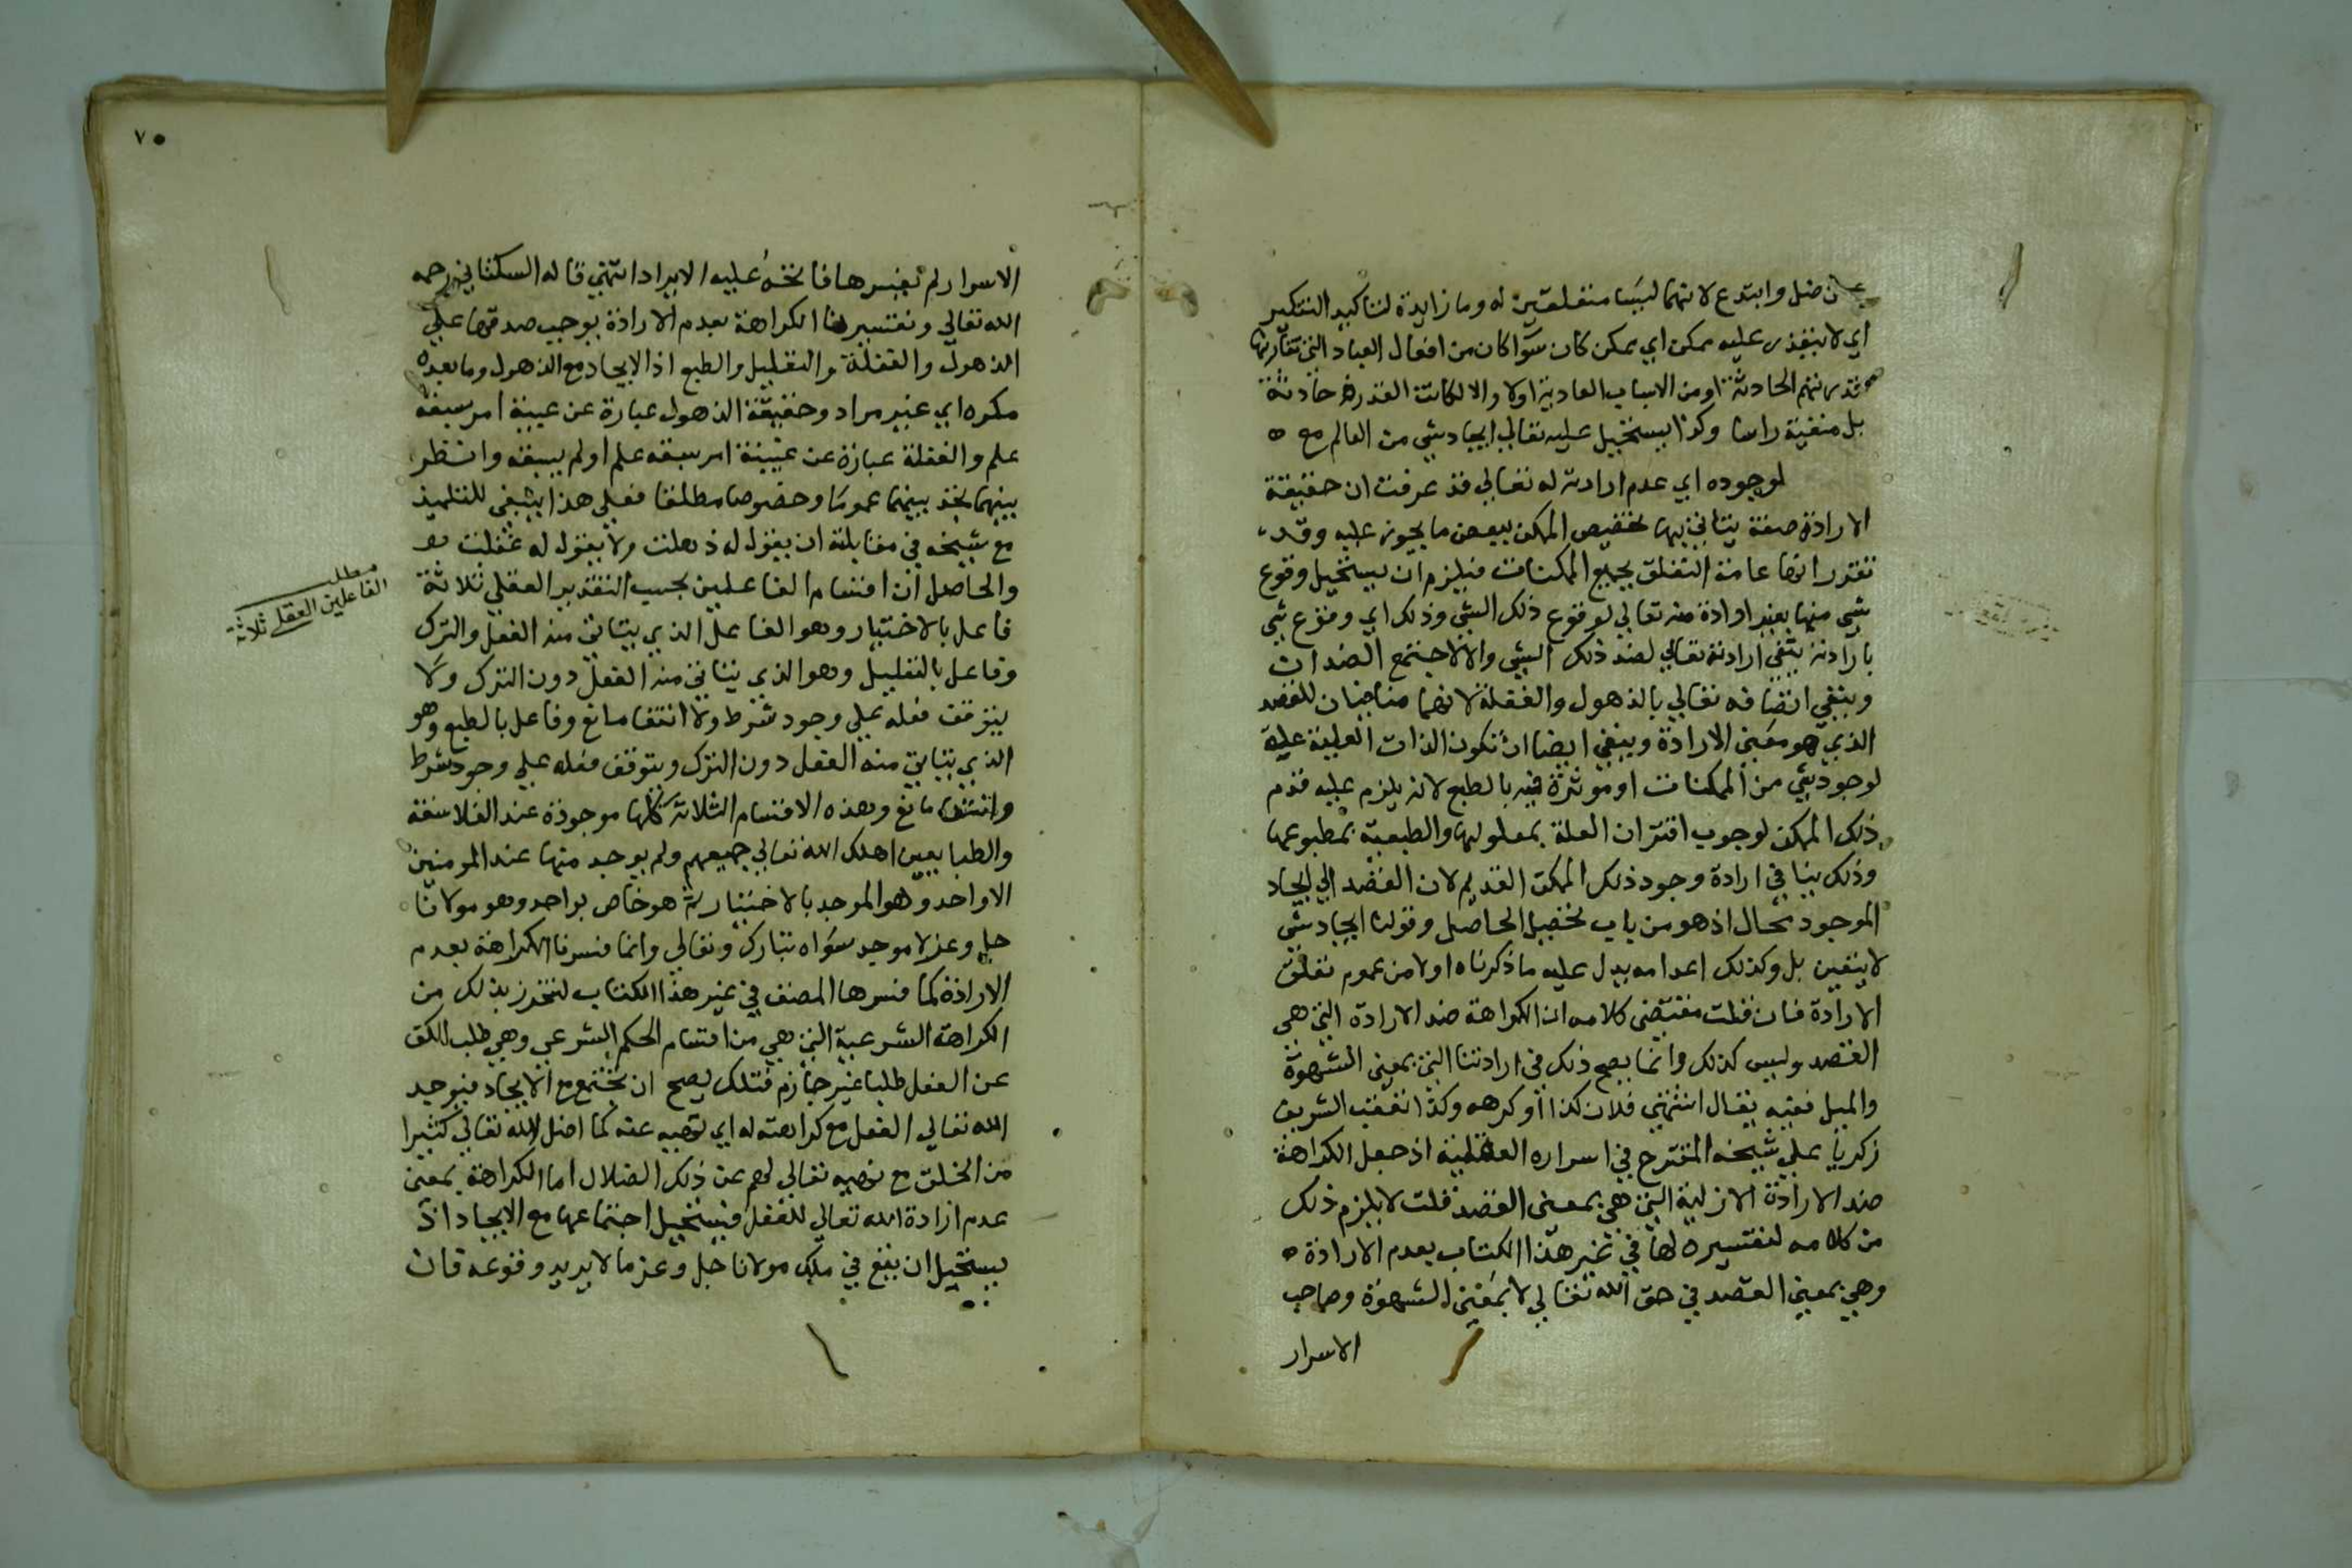 ضل وابتدع لانهما ليسا متعلقين له وما زايدة لتاكيد التنكير
اي لا يتعذر عليه ممكن اي ممكن كان سوآ كان من افعال العباد التي تقارنها
قدرتهم الحادثة او من الاسباب العادية اولا والا لكانت القدرة حادثة
بل منفية راسا وكذا يستحيل عليه تعالي ايجاد شي من العالم مع
لوجوده اي عدم ارادته له تعالي قد عرفت ان حقيقة
الارادة صفة يتاتي بها تخصيص الممكن ببعض ما يجوز عليه وقد
تقرر انها عامة التعلق بجميع الممكنات فيلزم ان يستحيل وقوع
شي منها بغير ارادة منه تعالي لوقوع ذلك الشي وذلك اي وقوع شي
بارادته ينفي ارادته تعالي لضد ذلك الشي والا لاجتمع الضدان
وينفي اتصافه تعالي بالذهول والغفلة لانهما منافيان للقصد
الذي هو معني الارادة وينفي ايضا ان تكون الذات العلية علة
لوجود شي من الممكنات او موثرة فيه بالطبع لانه يلزم عليه قدم
ذلك الممكن لوجوب اقتران العلة بمعلولها والطبيعة بمطبوعها
وذلك ينافي ارادة وجود ذلك الممكن القديم لان القصد الي ايجاد
الموجود محال اذ هو من باب تحصيل الحاصل وقولنا ايجاد شي
لا يتعين بل وكذلك اعدامه يدل عليه ما ذكرناه اولا من عموم تعلق
الارادة فان قلت مقتضي كلامه ان الكراهة ضد الارادة التي هي
القصد وليس كذلك وانما يصح ذلك في ارادتنا التي بمعني الشهوة
والميل ففيه يقال اشتهي فلان كذا او كرهه وكذا تعقب الشريف
زكريا علي شيخه المقترح في اسراره العقلية اذ جعل الكراهة
ضد الارادة الازلية التي هي بمعني القصد قلت لا يلزم ذلك
من كلامه لتفسيره لها في غير هذا الكتاب بعدم الارادة
وهي بمعني القصد في حق الله تعالي لا بمعني الشهوة وصاحب
الاسرار
٧٥
الاسرار لم يفسرها فاتجه عليه الايراد انتهي قاله السكتاني رحمه
الله تعالي وتفسيرنا الكراهة بعدم الارادة يوجب صدقها علي
الذهول والغفلة والتعليل والطبع اذ الايجاد مع الذهول وما بعده
مكره اي غير مراد وحقيقة الذهول عبارة عن غيبة امر سبقه
علم والغفلة عبارة عن غيبة امر سبقه علم او لم يسبقه وانظر
بينهما تجد بينهما عموما وخصوصا مطلقا فعلي هذا ينبغي للتلميذ
مع شيخه في مقابلة ان يقول له ذهلت ولا يقول له غفلت
والحاصل ان اقسام الفاعلين بحسب التقدير العقلي ثلاثة
مطلب
الفاعلين العقلي ثلاثة
فاعل بالاختيار وهو الفاعل الذي يتاتي منه الفعل والترك
وفاعل بالتعليل وهو الذي يتاتي منه الفعل دون الترك ولا
يتوقف فعله علي وجود شرط ولا انتفا مانع وفاعل بالطبع وهو
الذي يتاتي منه الفعل دون الترك ويتوقف فعله علي وجود شرط
وانتفا مانع وهذه الاقسام الثلاثة كلها موجودة عند الفلاسفة
والطبايعيين اهلك الله تعالي جميعهم ولم يوجد منها عند المومنين
الا واحد وهو الموجد بالاختيار ثم هو خاص بواحد وهو مولانا
جل وعز لا موجد سواه تبارك وتعالي وانما فسرنا الكراهة بعدم
الارادة كما فسرها المصنف في غير هذا الكتاب لنتحرز بذلك من
الكراهة الشرعية التي هي من اقسام الحكم الشرعي وهي طلب الكف
عن الفعل طلبا غير جازم فتلك يصح ان تجتمع مع الايجاد فيوجد
الله تعالي الفعل مع كراهته له اي نهيه عنه كما اضل الله تعالي كثيرا
من الخلق مع نهيه تعالي لهم عن ذلك الضلال اما الكراهة بمعني
عدم ارادة الله تعالي للفعل فيستحيل اجتماعها مع الايجاد اذ
يستحيل ان يقع في ملك مولانا جل وعز ما لا يريد وقوعه قان